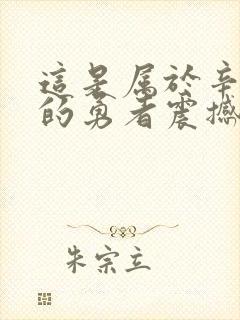 這是屬於辛
的勇者震撼
朱宗立